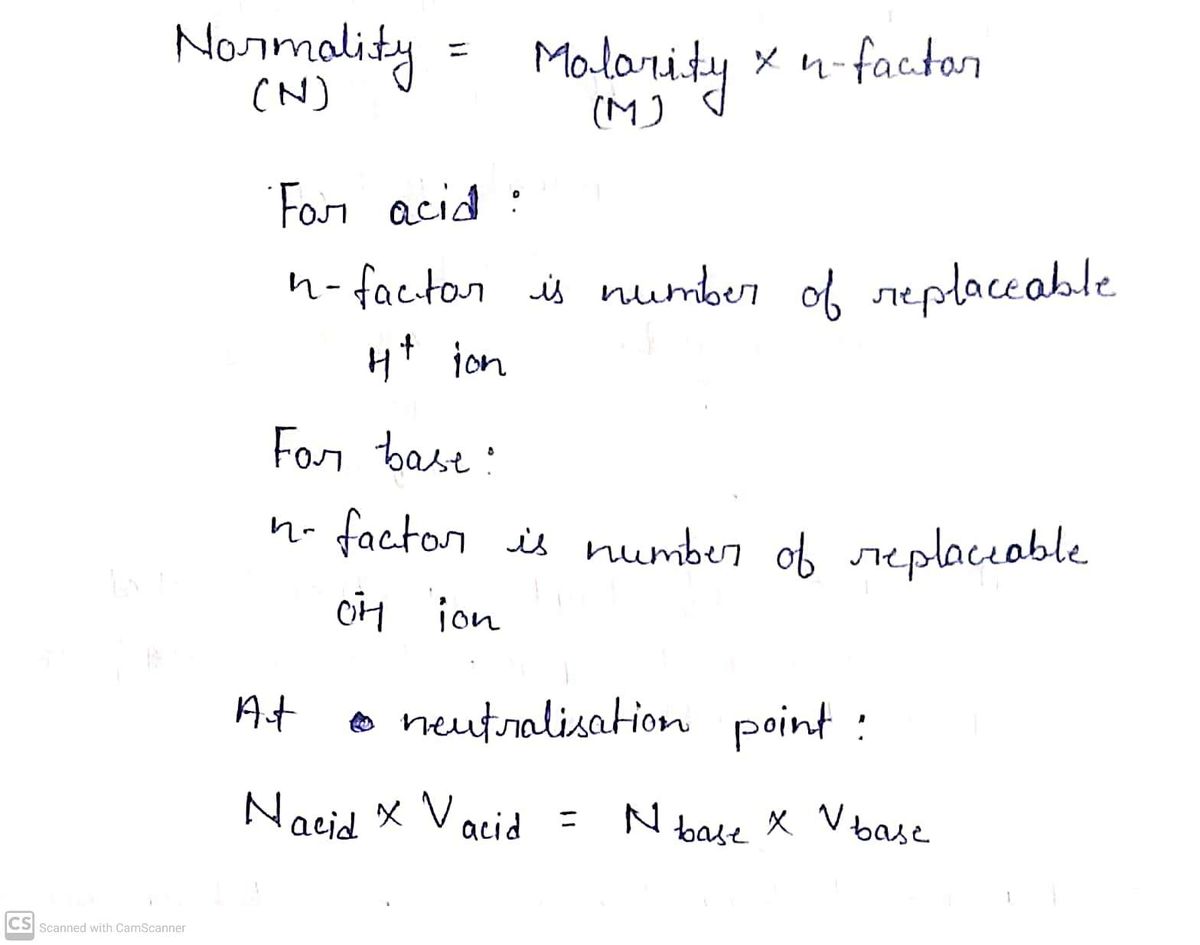 Normality = Molarity × n-factor
(N) (M)
For acid :
n-factor is number of replaceable
H⁺ ion
For base :
n-factor is number of replaceable
OH⁻ ion
At neutralisation point :
N acid × V acid = N base × V base
CS Scanned with CamScanner